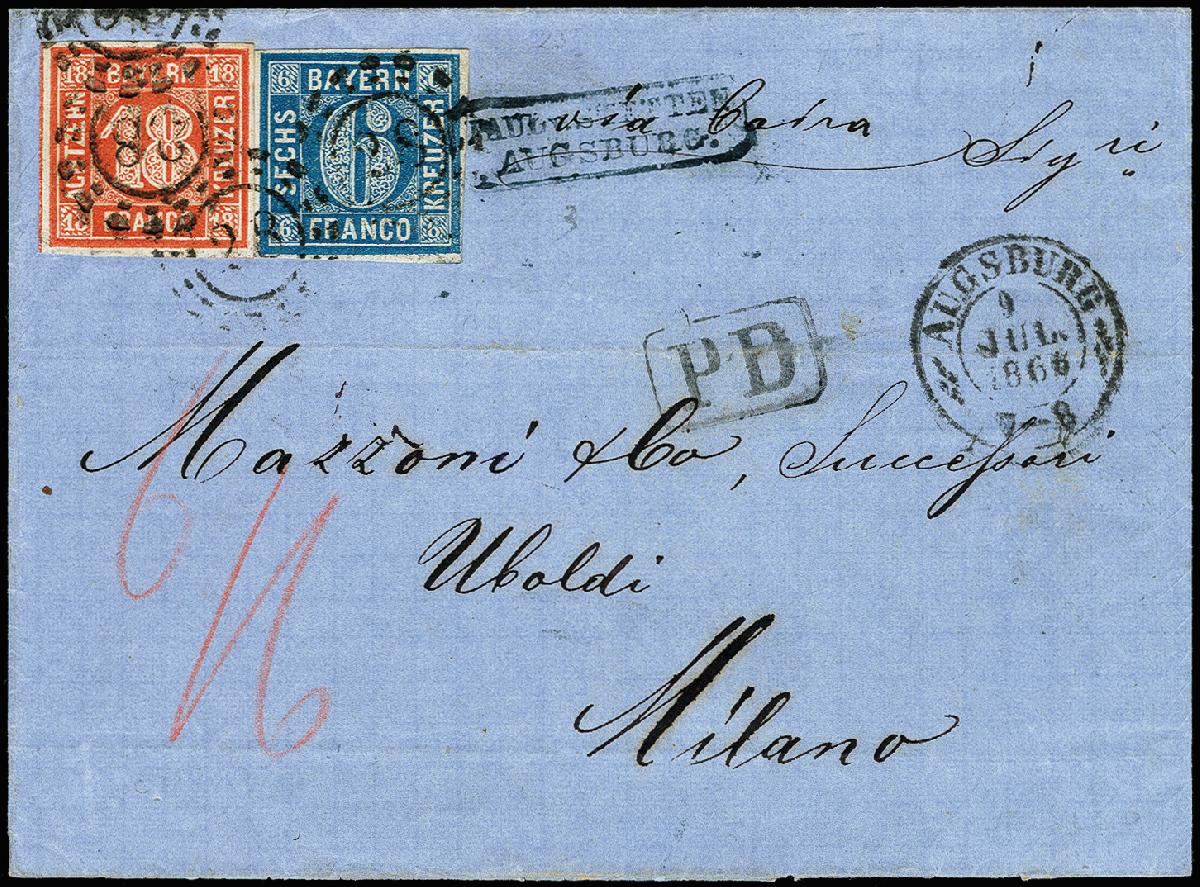 18 BAYERN 18
ACTZEHN 18 KREUZER
18 FRANCO 18
6 BAYERN 6
SECHS 6 KREUZER
6 FRANCO 6
28
AUGSBURG.
via
Sigri
3
PD
AUGSBURG
9
JUL.
1866
7-8
Mazzoni & Co, Successori
Uboldi
Milano
6/